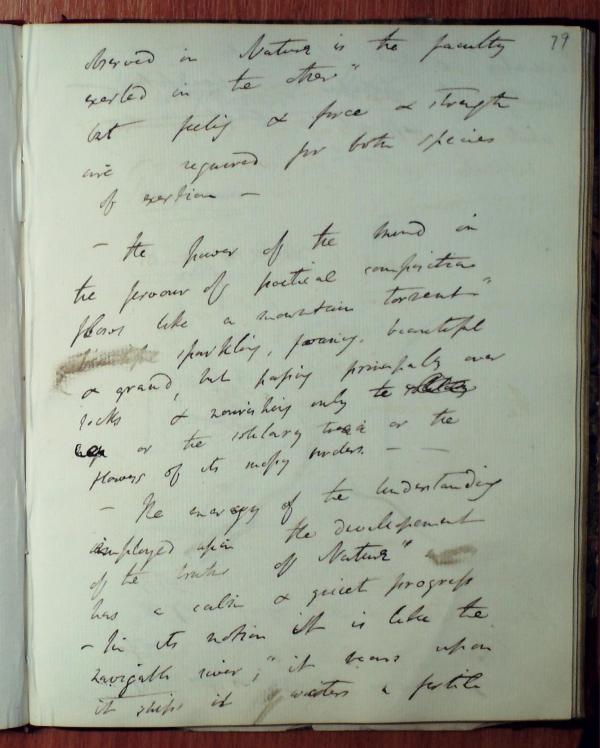 79
observed in Nature is the faculty
exerted in the other"
but feeling & force & strength
are required for both species
of exertion —
— The power of the mind in
the fervour of poetical composition
flows like a mountain torrent"
sparkling, foaming, beautiful
& grand, but passing principally over
rocks & nourishing only the
or the solitary tree or the
flowers of its mossy borders. — —
— The energy of the understanding
employed upon the developement
of the truths of Nature"
has a calm & quiet progress
- In its motion it is like the
navigable river; "it bears upon
it ships it waters a fertile